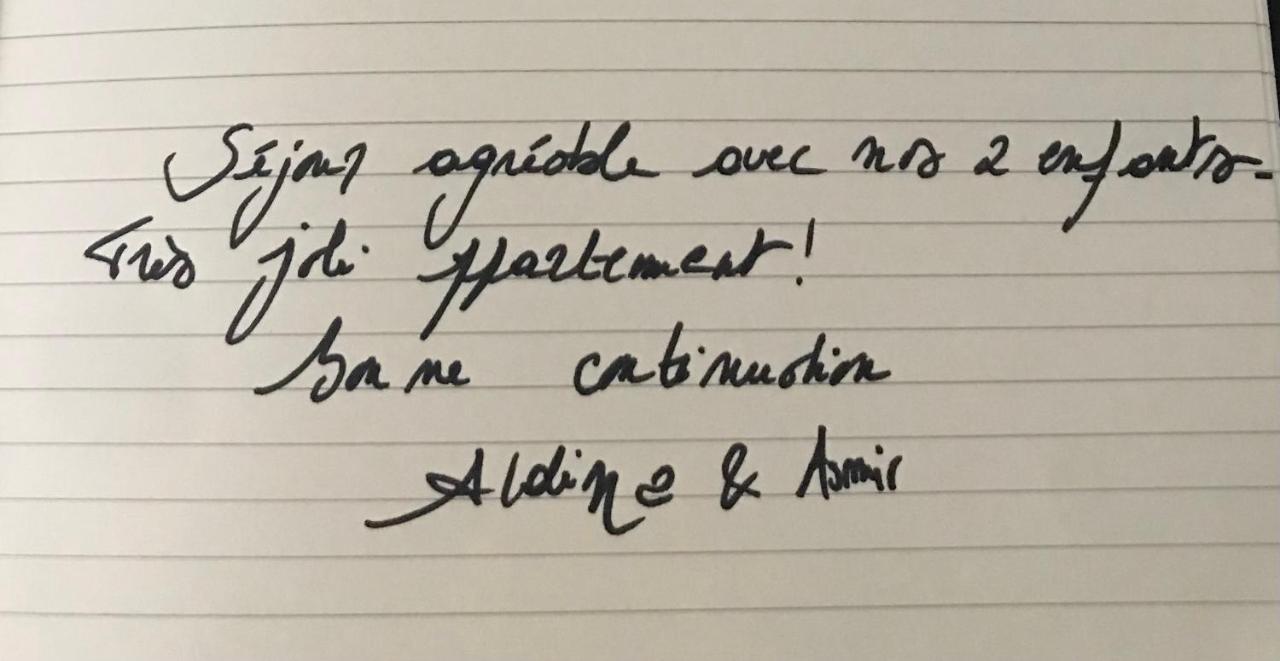 Séjour agréable avec nos 2 enfants.
Très joli appartement !
Bonne continuation
Aldine & Asmir